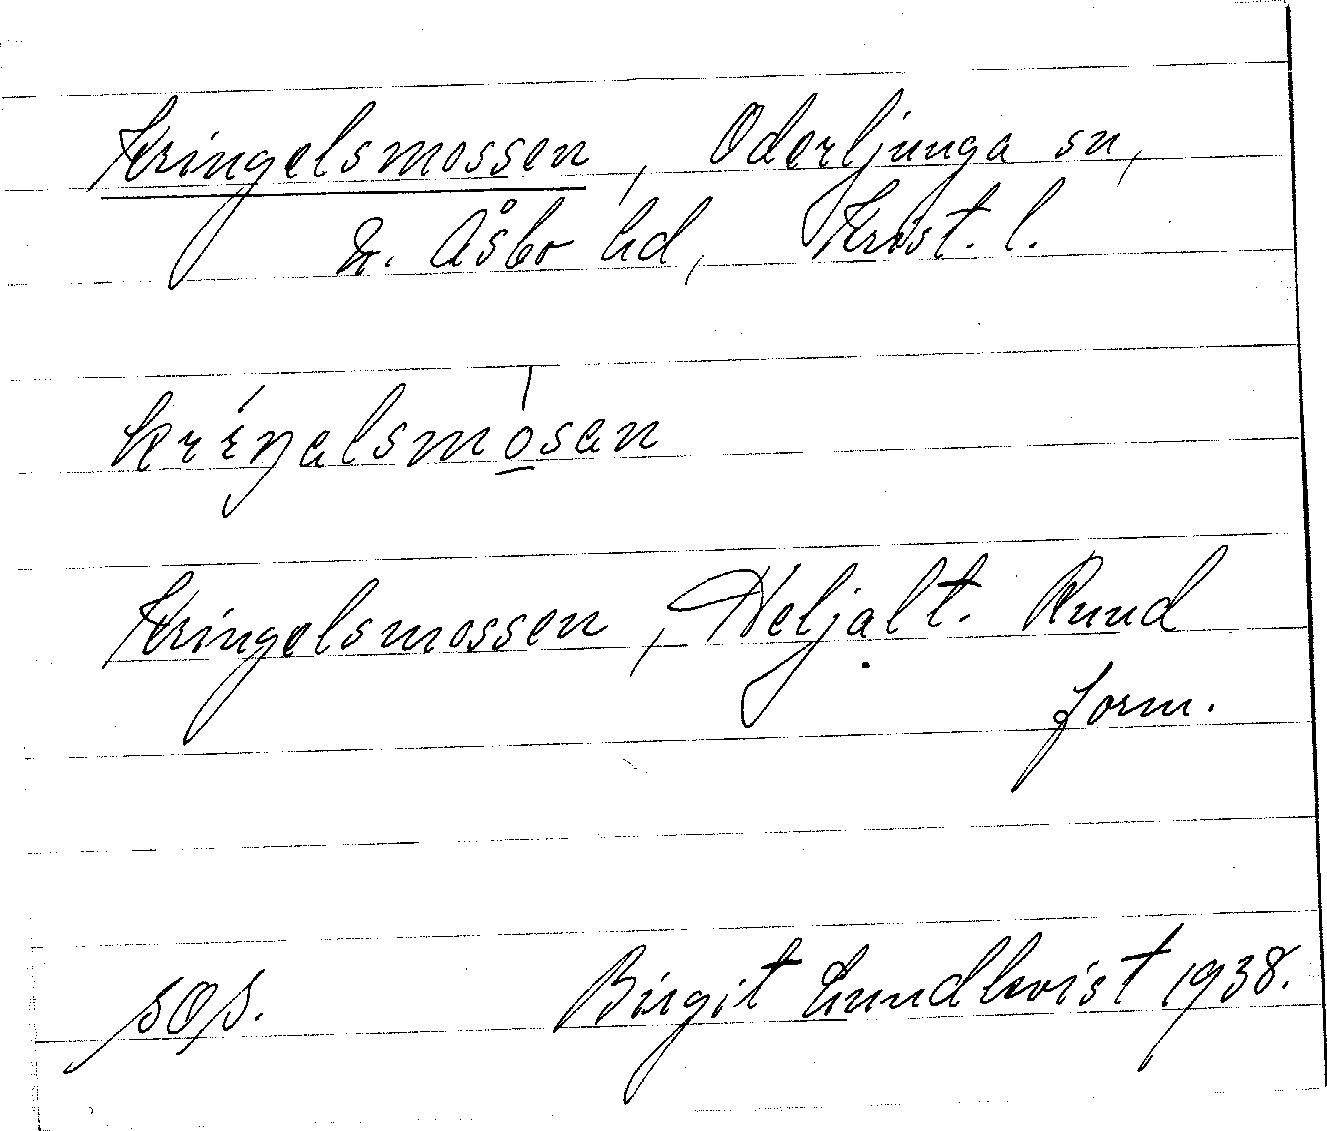 Kringelsmossen, Oderljunga sn,
N. Åsbo hd, Krist. l.
kríŋalsmosan
Kringelsmossen, Heljalt. Rund
form.
sos.
Birgit Lundkvist 1938.